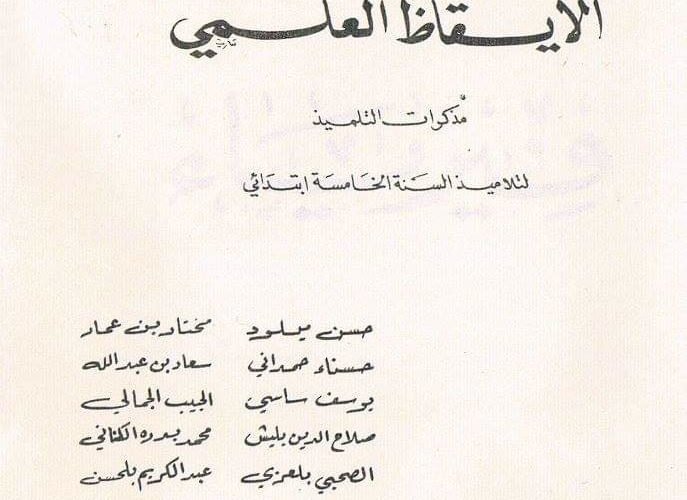 الايقاظ العلمي
مذكرات التلميذ
لتلاميذ السنة الخامسة ابتدائي
حسن ميلود مختار بن عمار
حسناء حمداني سعاد بن عبد الله
يوسف ساسي الجيب الجمالي
صلاح الدين بليش محمد بدره الكناني
الصحبي بلعزي عبد الكريم بلحسن